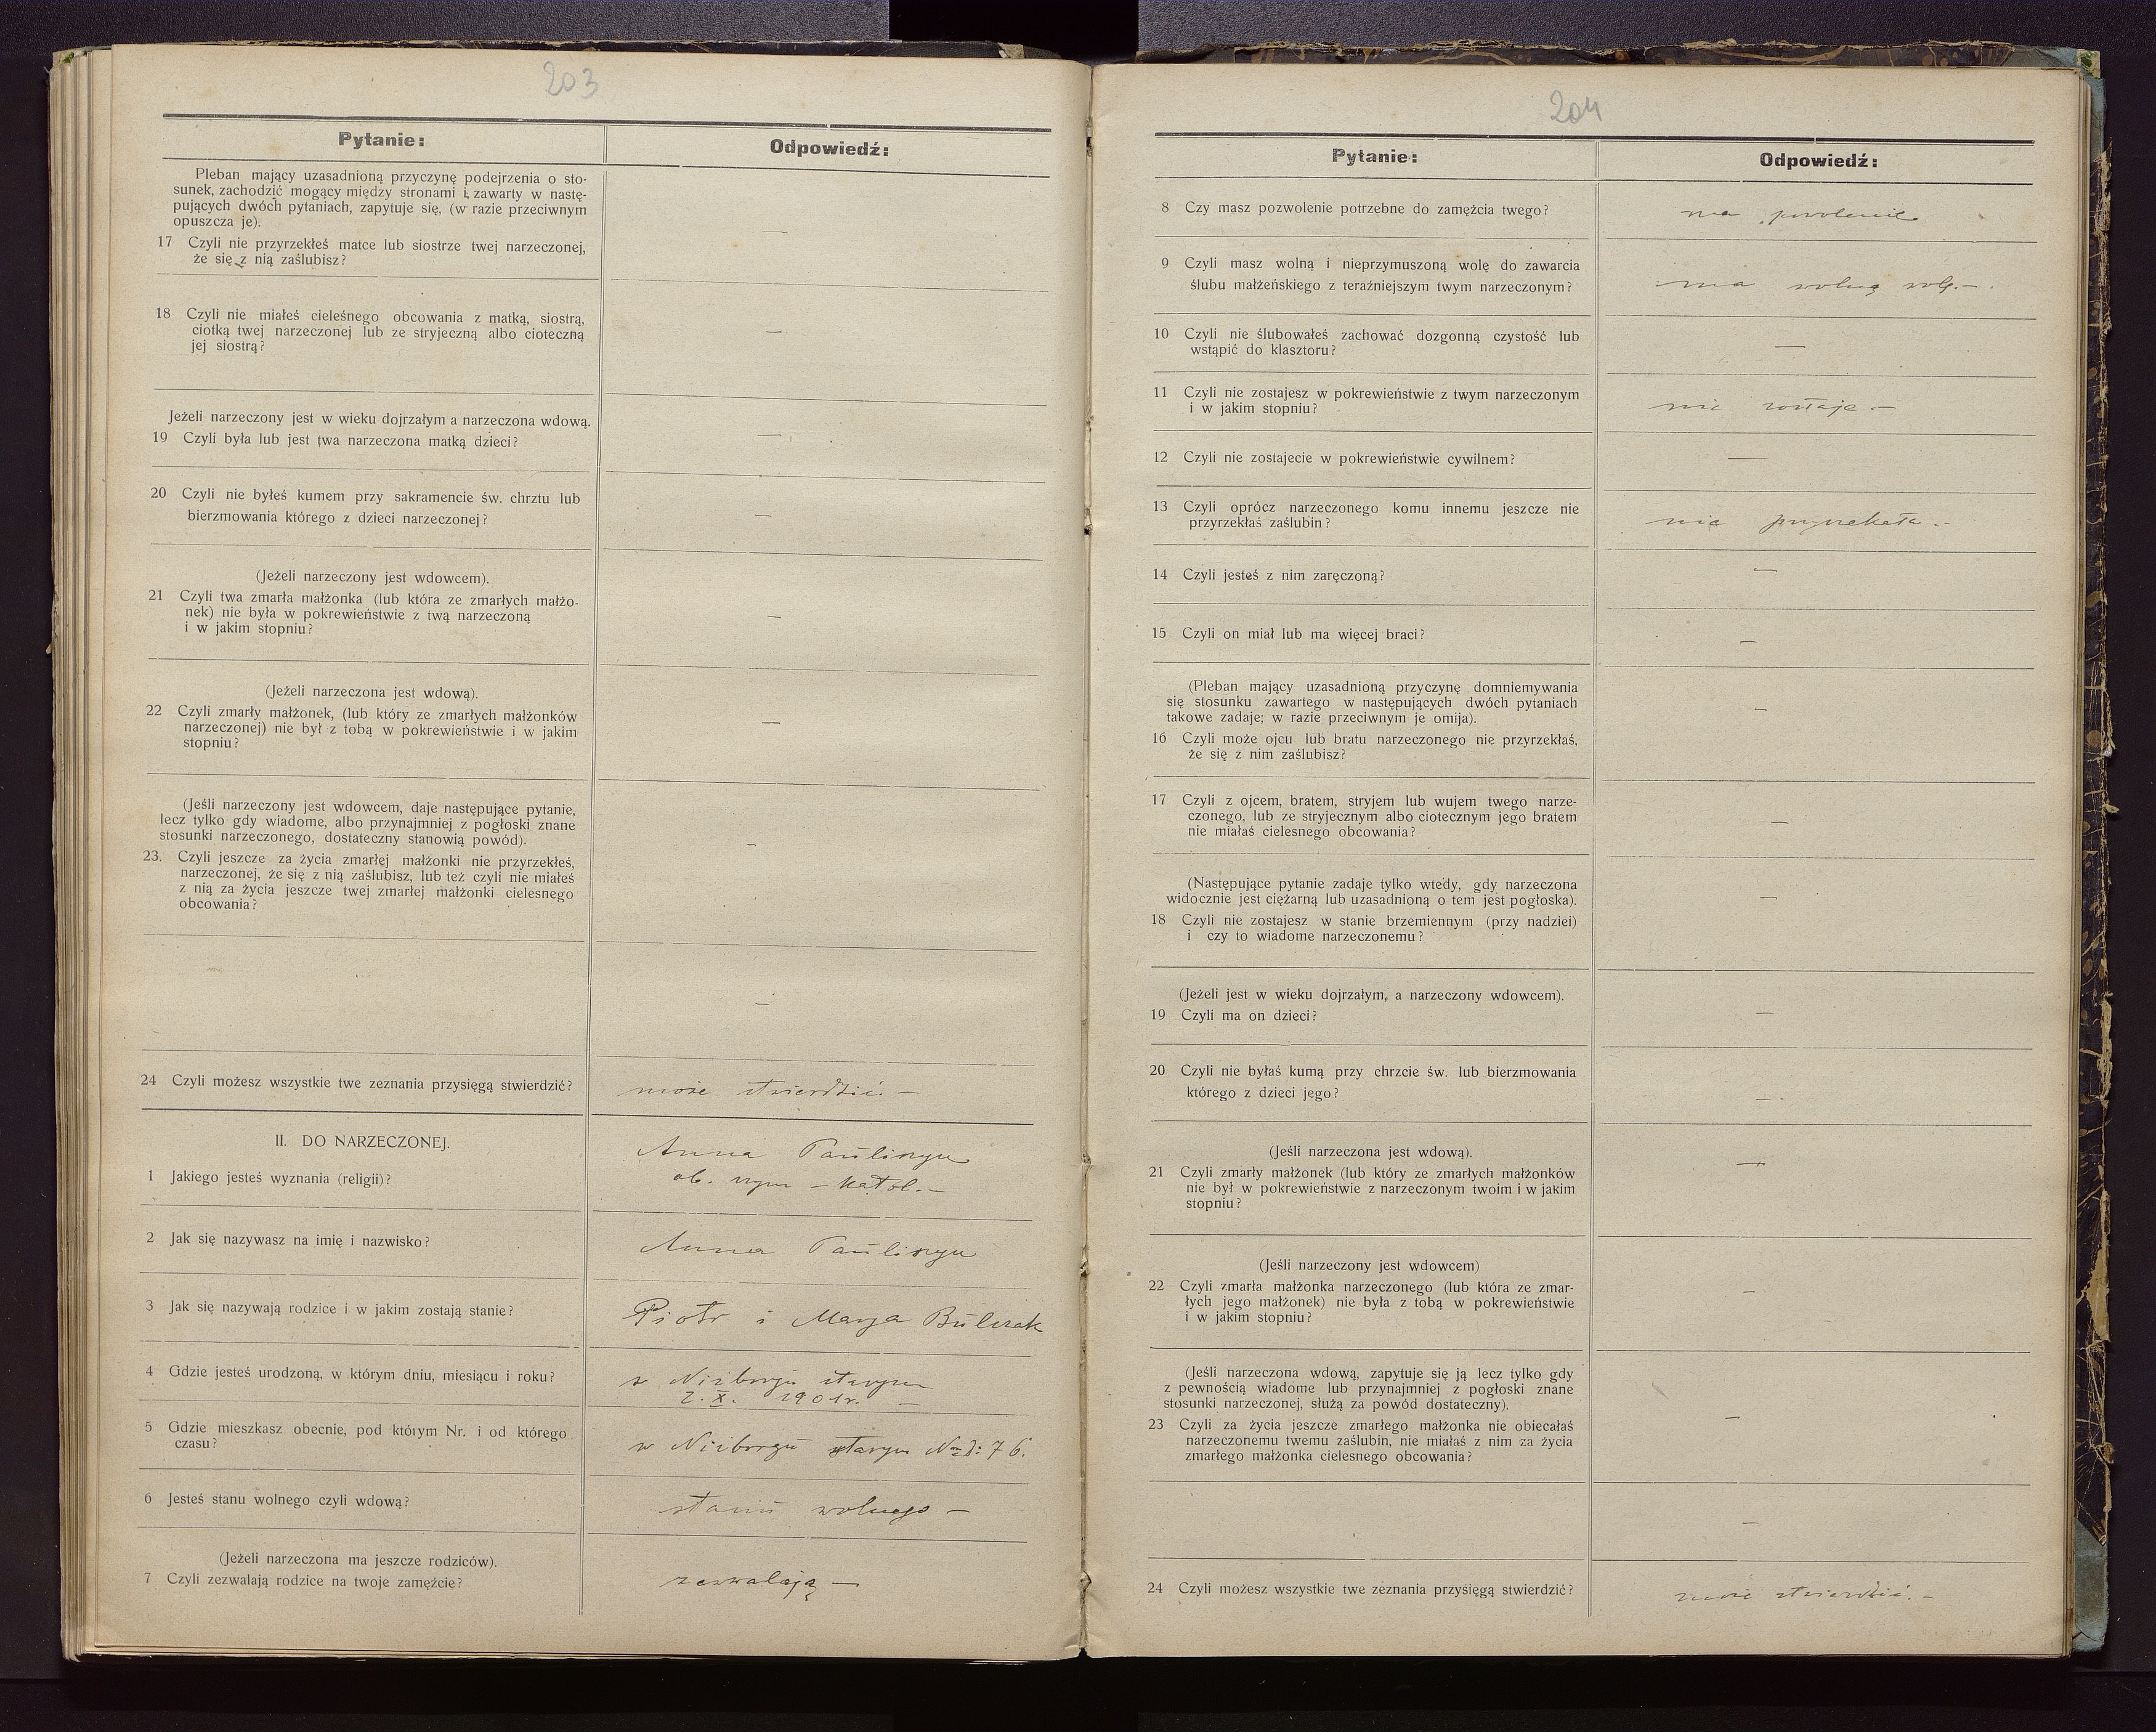 203
Pytanie:
Odpowiedź:
Pleban mający uzasadnioną przyczynę podejrzenia o sto-
sunek, zachodzić mogący między stronami i zawarty w nastę-
pujących dwóch pytaniach, zapytuje się, (w razie przeciwnym
opuszcza je).
17 Czyli nie przyrzekłeś matce lub siostrze twej narzeczonej,
że się z nią zaślubisz?
—
18 Czyli nie miałeś cieleśnego obcowania z matką, siostrą,
ciotką twej narzeczonej lub ze stryjeczną albo cioteczną
jej siostrą?
—
Jeżeli narzeczony jest w wieku dojrzałym a narzeczona wdową.
19 Czyli była lub jest twa narzeczona matką dzieci?
—
20 Czyli nie byłeś kumem przy sakramencie św. chrztu lub
bierzmowania którego z dzieci narzeczonej?
—
(Jeżeli narzeczony jest wdowcem).
21 Czyli twa zmarła małżonka (lub która ze zmarłych małżo-
nek) nie była w pokrewieństwie z twą narzeczoną
i w jakim stopniu?
—
(Jeżeli narzeczona jest wdową).
22 Czyli zmarły małżonek, (lub który ze zmarłych małżonków
narzeczonej) nie był z tobą w pokrewieństwie i w jakim
stopniu?
—
(Jeśli narzeczony jest wdowcem, daje następujące pytanie,
lecz tylko gdy wiadome, albo przynajmniej z pogłoski znane
stosunki narzeczonego, dostateczny stanowią powód).
23. Czyli jeszcze za życia zmarłej małżonki nie przyrzekłeś,
narzeczonej, że się z nią zaślubisz, lub też czyli nie miałeś
z nią za życia jeszcze twej zmarłej małżonki cielesnego
obcowania?
—
—
24 Czyli możesz wszystkie twe zeznania przysięgą stwierdzić?
może stwierdzić. —
II. DO NARZECZONEJ.
1 Jakiego jesteś wyznania (religii)?
Anna
ob. rzym – katol. —
2 Jak się nazywasz na imię i nazwisko?
Anna
3 Jak się nazywają rodzice i w jakim zostają stanie?
Piotr i Marya Bulczak
4 Gdzie jesteś urodzoną, w którym dniu, miesiącu i roku?
w Niżborgu starym
2. X. 1901 r. —
5 Gdzie mieszkasz obecnie, pod którym Nr. i od którego
czasu?
w Niżborgu starym Nrd: 76.
6 Jesteś stanu wolnego czyli wdową?
stanu wolnego —
(Jeżeli narzeczona ma jeszcze rodziców).
7 Czyli zezwalają rodzice na twoje zamężcie?
zezwalają —
204
Pytanie:
Odpowiedź:
8 Czy masz pozwolenie potrzebne do zamężcia twego?
ma pozwolenie
9 Czyli masz wolną i nieprzymuszoną wolę do zawarcia
ślubu małżeńskiego z teraźniejszym twym narzeczonym?
ma wolną wolę. —
10 Czyli nie ślubowałeś zachować dozgonną czystość lub
wstąpić do klasztoru?
—
11 Czyli nie zostajesz w pokrewieństwie z twym narzeczonym
i w jakim stopniu?
nie zostaje —
12 Czyli nie zostajecie w pokrewieństwie cywilnem?
—
13 Czyli oprócz narzeczonego komu innemu jeszcze nie
przyrzekłaś zaślubin?
nie przyrzekała. —
14 Czyli jesteś z nim zaręczoną?
—
15 Czyli on miał lub ma więcej braci?
—
(Pleban mający uzasadnioną przyczynę domniemywania
się stosunku zawartego w następujących dwóch pytaniach
takowe zadaje; w razie przeciwnym je omija).
—
16 Czyli może ojcu lub bratu narzeczonego nie przyrzekłaś,
że się z nim zaślubisz?
17 Czyli z ojcem, bratem, stryjem lub wujem twego narze-
czonego, lub ze stryjecznym albo ciotecznym jego bratem
nie miałaś cielesnego obcowania?
—
(Następujące pytanie zadaje tylko wtedy, gdy narzeczona
widocznie jest ciężarną lub uzasadnioną o tem jest pogłoska).
—
18 Czyli nie zostajesz w stanie brzemiennym (przy nadziei)
i czy to wiadome narzeczonemu?
(Jeżeli jest w wieku dojrzałym, a narzeczony wdowcem).
19 Czyli ma on dzieci?
—
20 Czyli nie byłaś kumą przy chrzcie św. lub bierzmowania
którego z dzieci jego?
—
(Jeśli narzeczona jest wdową).
21 Czyli zmarły małżonek (lub który ze zmarłych małżonków
nie był w pokrewieństwie z narzeczonym twoim i w jakim
stopniu?
—
(Jeśli narzeczony jest wdowcem)
22 Czyli zmarła małżonka narzeczonego (lub która ze zmar-
łych jego małżonek) nie była z tobą w pokrewieństwie
i w jakim stopniu?
—
(Jeśli narzeczona wdową, zapytuje się ją lecz tylko gdy
z pewnością wiadome lub przynajmniej z pogłoski znane
stosunki narzeczonej, służą za powód dostateczny).
23 Czyli za życia jeszcze zmarłego małżonka nie obiecałaś
narzeczonemu twemu zaślubin, nie miałaś z nim za życia
zmarłego małżonka cielesnego obcowania?
—
—
24 Czyli możesz wszystkie twe zeznania przysięgą stwierdzić?
może stwierdzić. —